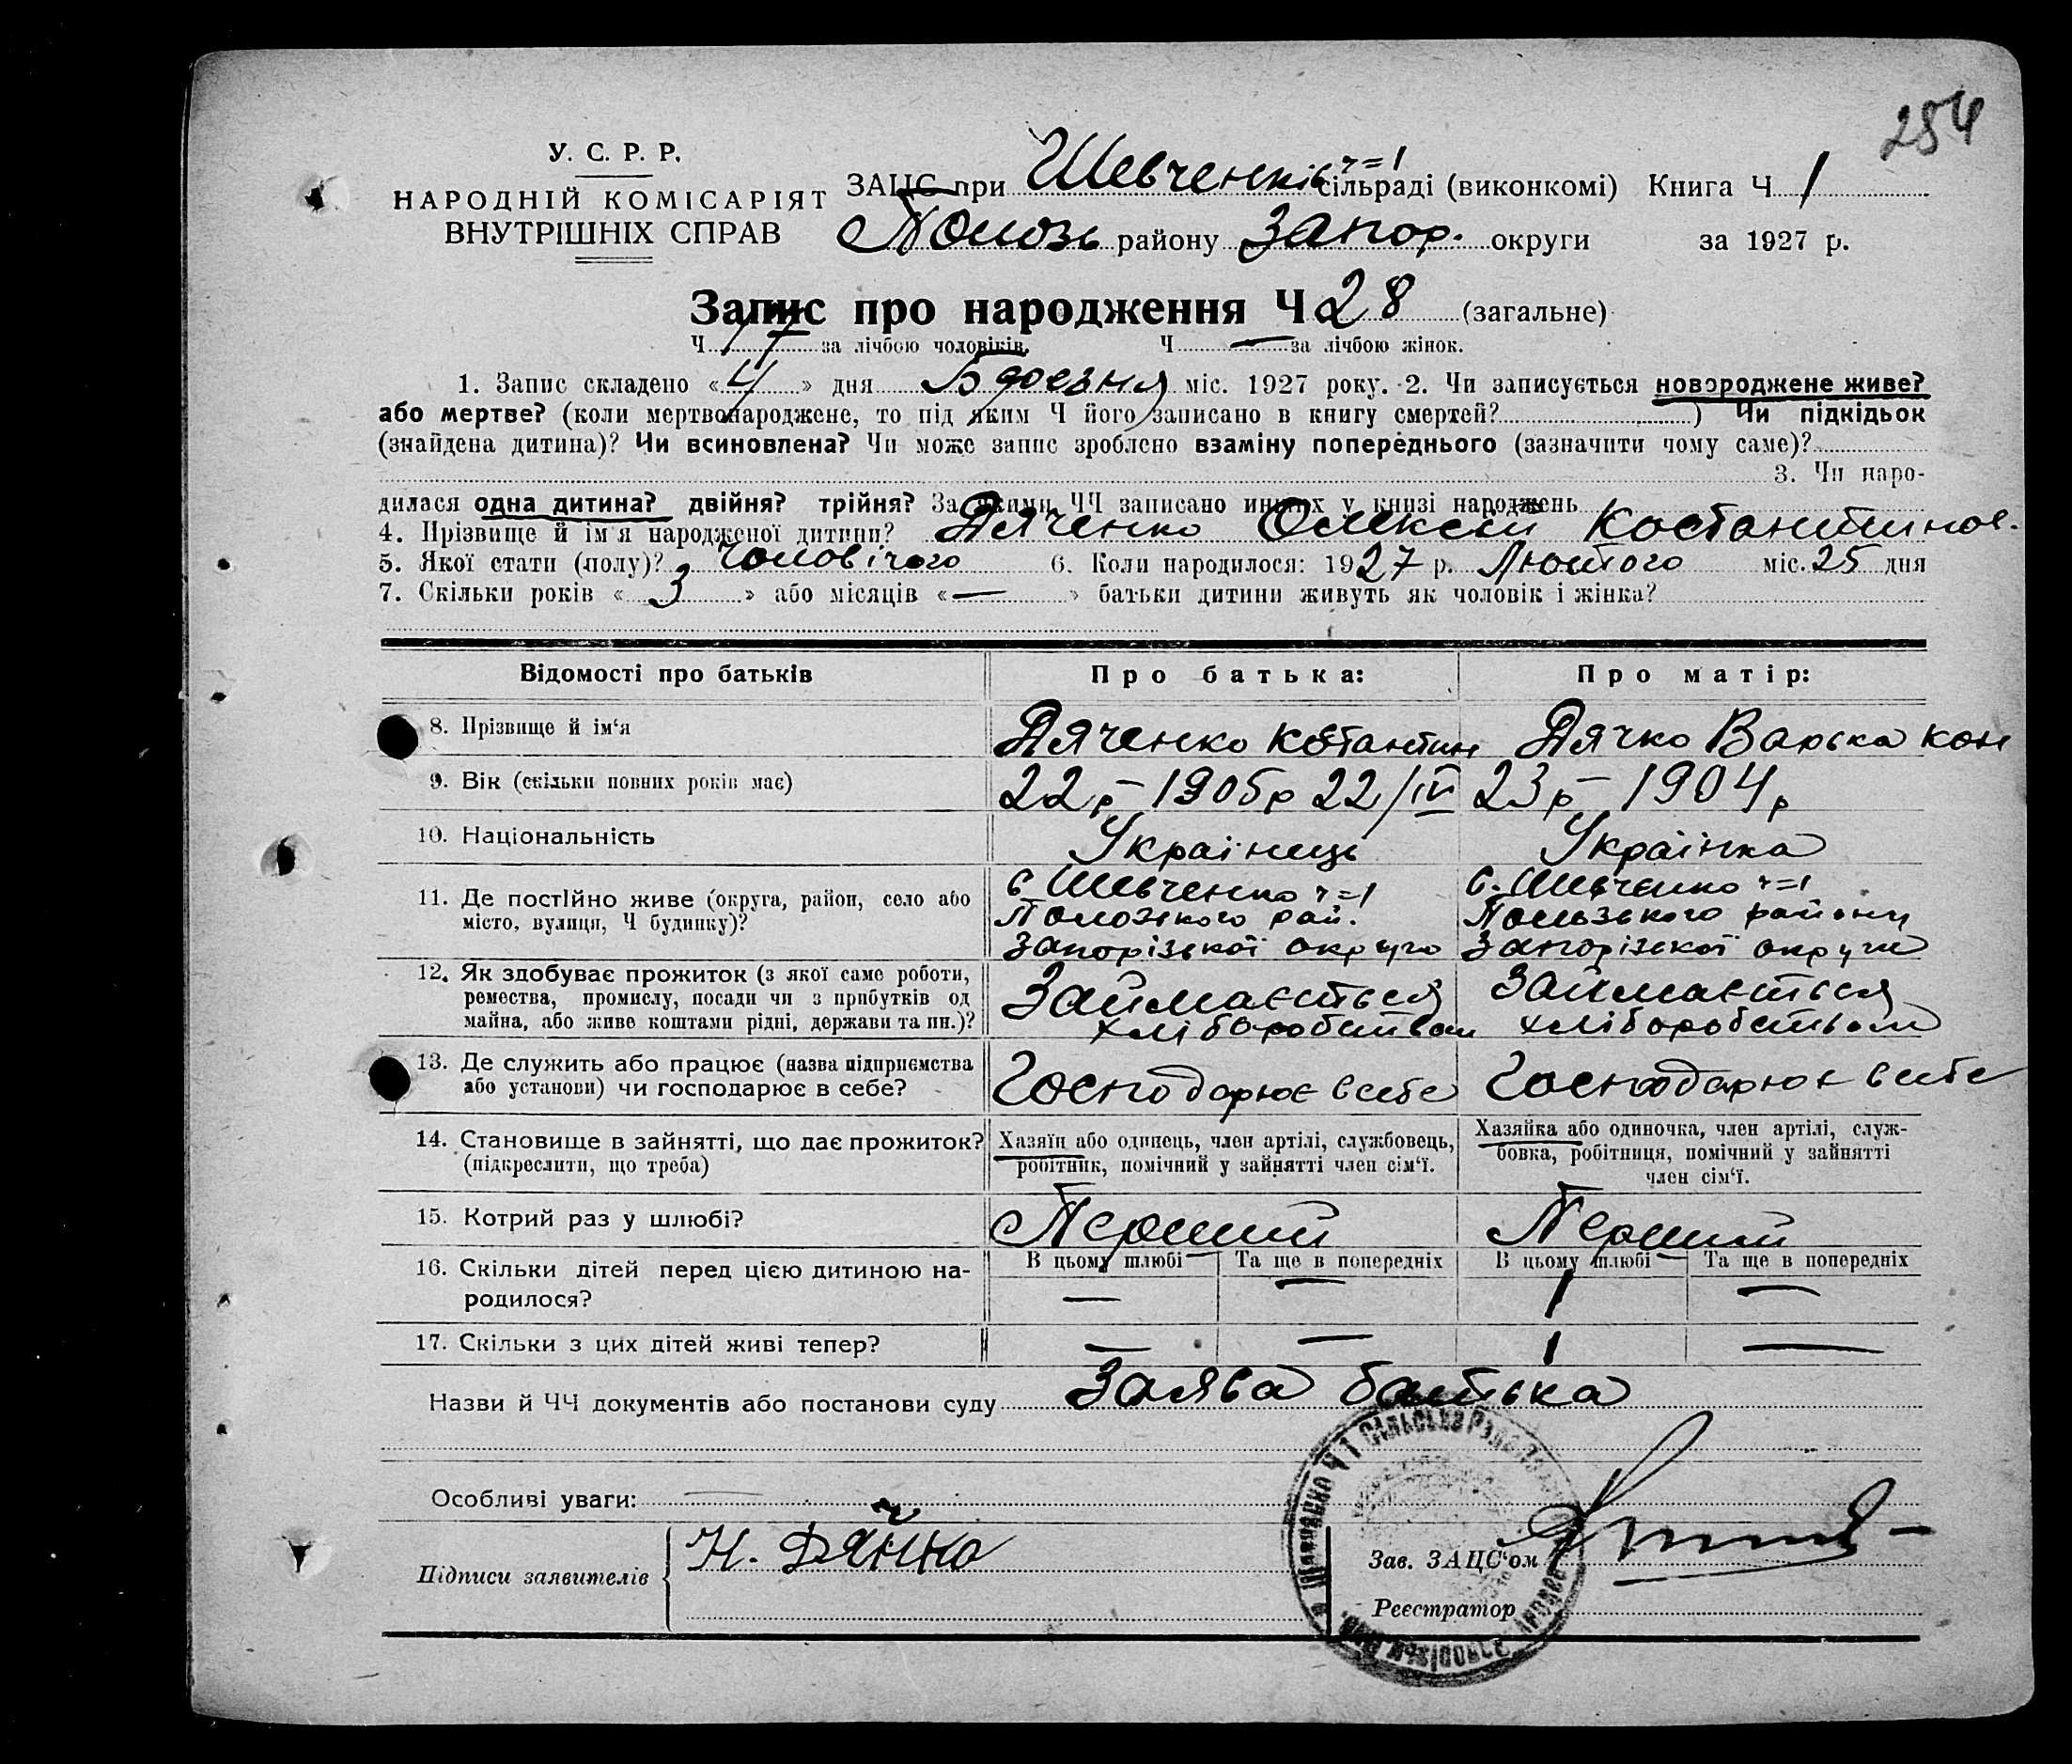 254
У. С. Р. Р.
НАРОДНІЙ КОМІСАРІЯТ
ВНУТРІШНІХ СПРАВ
ЗАЦС при Шевченків ч=1 сільраді (виконкомі) Книга Ч 1
Полозь району Запор. округи за 1927 р.
Запис про народження Ч 28 (загальне)
Ч 17 за лічбою чоловіків. Ч — за лічбою жінок.
1. Запис складено «4» дня Березня міс. 1927 року. 2. Чи записується новороджене живе?
або мертве? (коли мертвонароджене, то під яким Ч його записано в книгу смертей?) Чи підкідьок
(знайдена дитина)? Чи всиновлена? Чи може запис зроблено взаміну попереднього (зазначити чому саме)?
3. Чи наро-
дилася одна дитина? двійня? трійня? За якими ЧЧ записано инших у книзі народжень
4. Прізвище й ім'я народженої дитини? Дяченко Олексій Костантинов.
5. Якої стати (полу)? Чоловічого 6. Коли народилося: 1927 р. Лютого міс. 25 дня
7. Скільки років «3» або місяців «—» батьки дитини живуть як чоловік і жінка?
Відомості про батьків Про батька: Про матір:
8. Прізвище й ім'я Дяченко Костантин Дячко Варька кон
9. Вік (скільки повних років має) 22 р – 1905 р 22/IV 23 р – 1904 р
10. Національність Українець Українка
11. Де постійно живе (округа, район, село або
місто, вулиця, Ч будинку)?
с Шевченко ч=1
Полозького рай.
Запорізької округи
с. Шевченко ч=1
Полозького району
Запорізської округи
12. Як здобуває прожиток (з якої саме роботи,
ремества, промислу, посади чи з прибутків од
майна, або живе коштами рідні, держави та ин.)?
Займається
хліборобством
Займається
хліборобством
13. Де служить або працює (назва підприємства
або установи) чи господарює в себе?
Господарює всебе Господарює всебе
14. Становище в зайнятті, що дає прожиток?
(підкреслити, що треба)
Хазяїн або одинець, член артілі, службовець,
робітник, помічний у зайнятті член сім'ї.
Хазяйка або одиночка, член артілі, служ-
бовка, робітниця, помічний у зайнятті
член сім'ї.
15. Котрий раз у шлюбі? Перший Перший
16. Скільки дітей перед цією дитиною на-
родилося?
В цьому шлюбі Та ще в попередніх В цьому шлюбі Та ще в попередніх
— — 1 —
17. Скільки з цих дітей живі тепер? — — 1 —
Назви й ЧЧ документів або постанови суду Заява батька
Особливі уваги:
Підписи заявителів
Зав. ЗАЦС'ом
Реєстратор